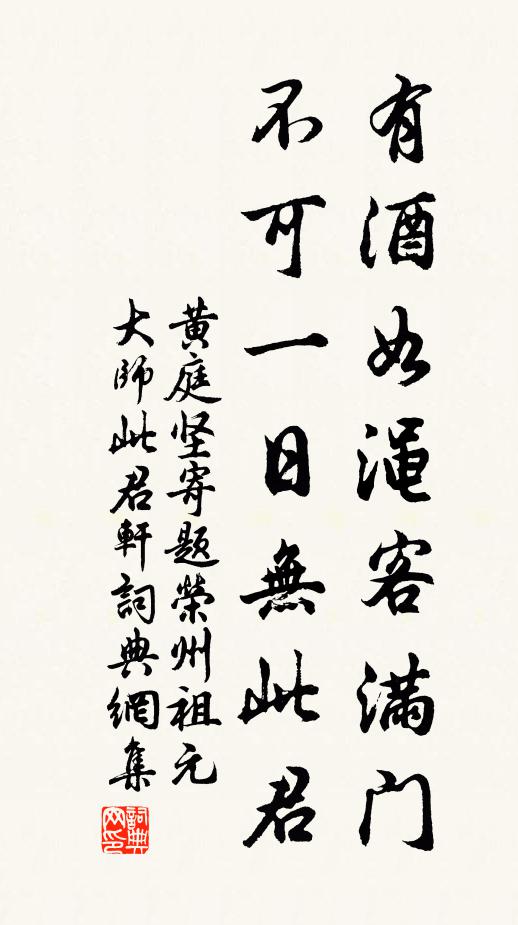 有酒如渑客满门
不可一日無此君
黄庭坚寄题榮州祖元
大師此君軒詞典網集
詞典网印